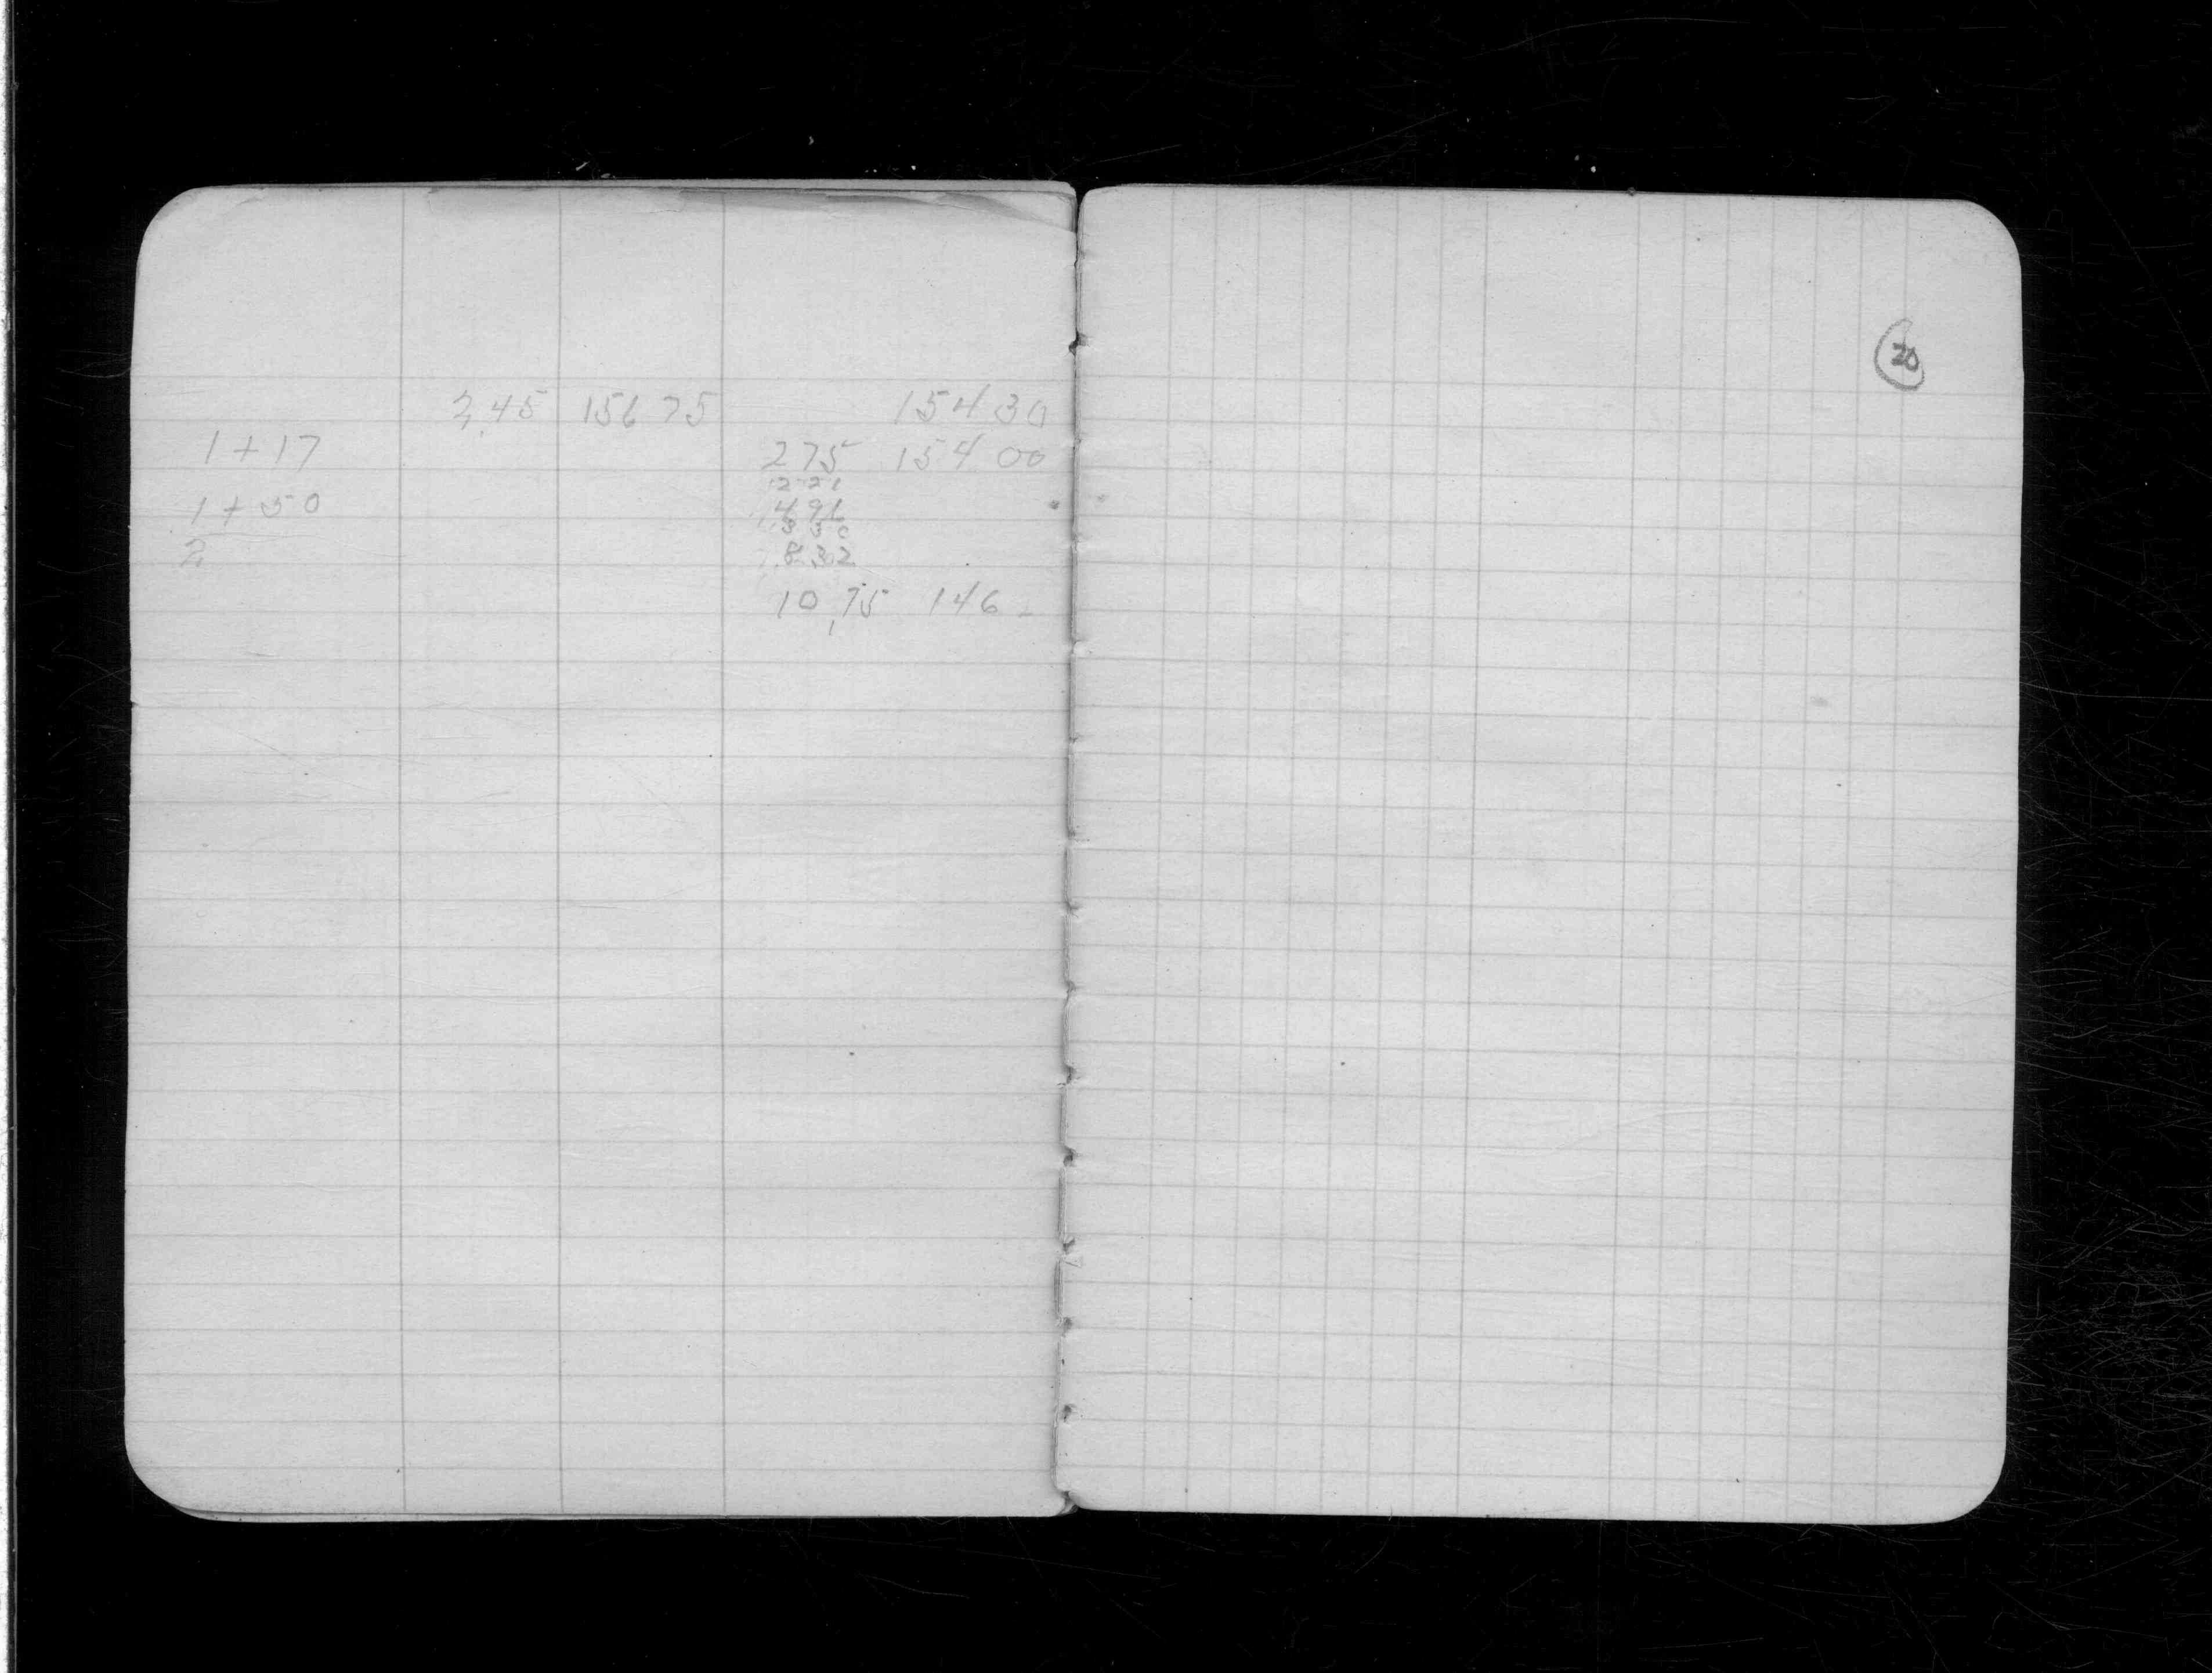 2.45 156 75 154 30
1+17 275 154 00
221
1+50 496
330
2 8.32
10.75 146 -
20